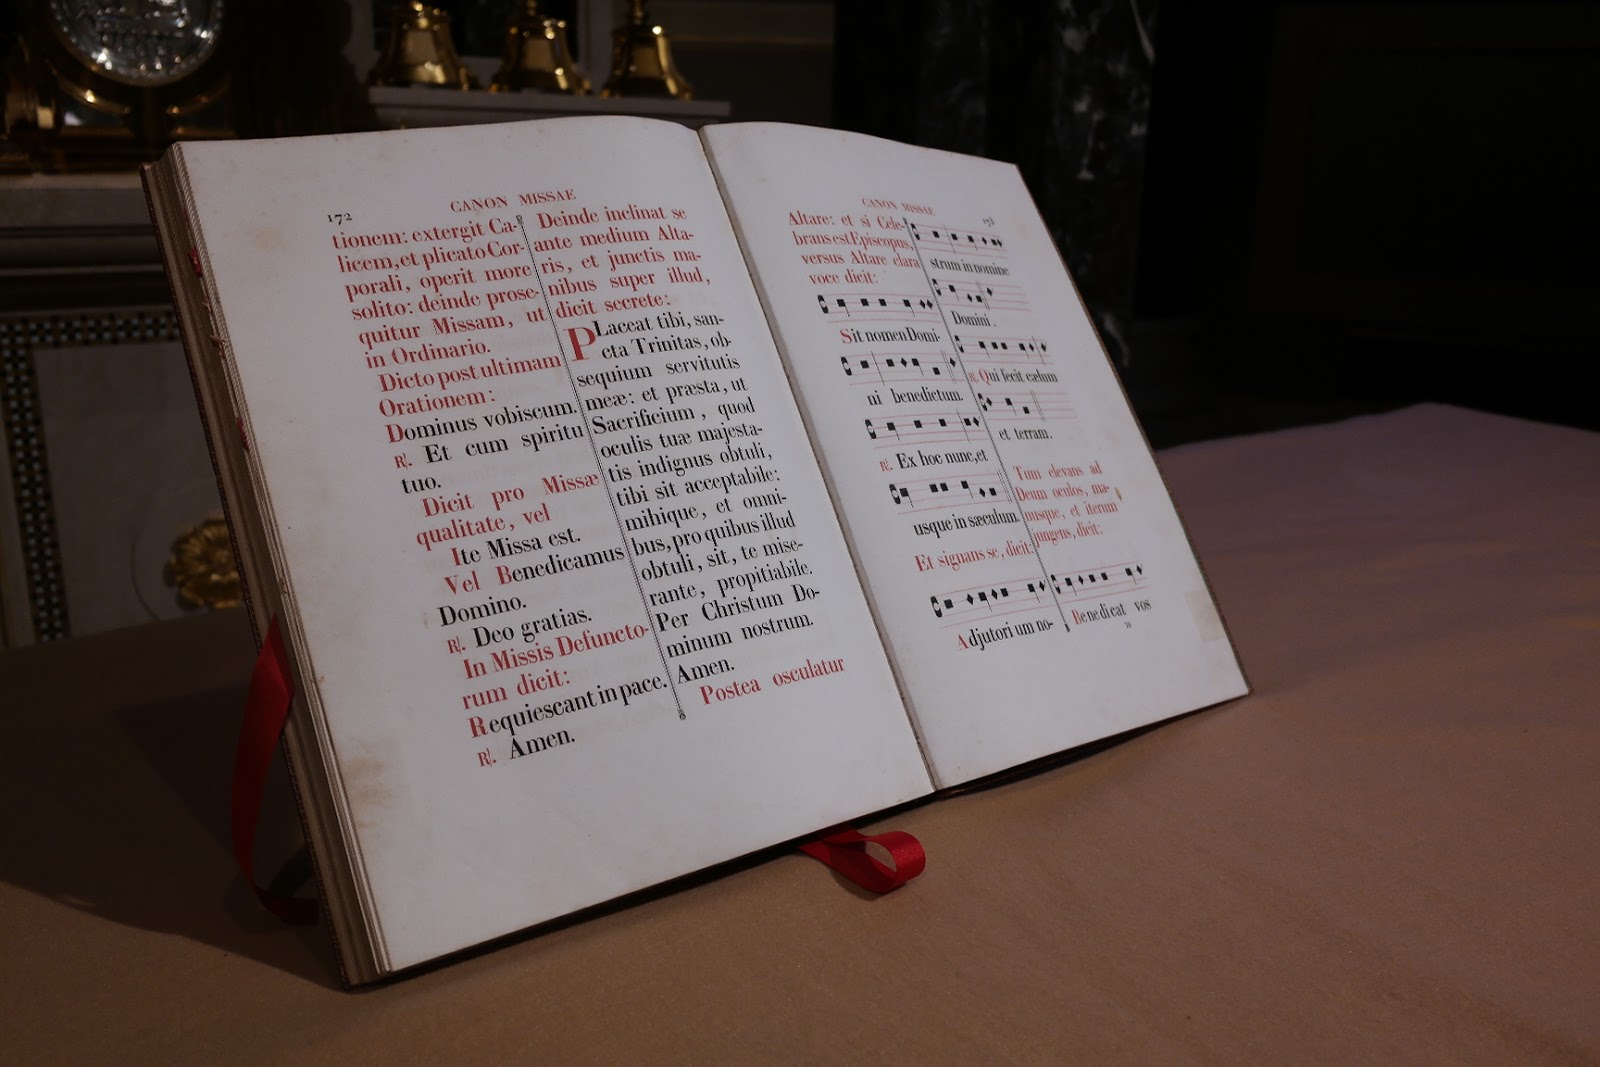 172
CANON MISSAE
tionem: extergit Ca-
licem, et plicato Cor-
porali, operit more
solito: deinde prose-
quitur Missam, ut
in Ordinario.
Dicto post ultimam
Orationem:
Dominus vobiscum.
℟. Et cum spiritu
tuo.
Dicit pro Missæ
qualitate, vel
Ite Missa est.
Vel Benedicamus
Domino.
℟. Deo gratias.
In Missis Defuncto-
rum dicit:
Requiescant in pace.
℟. Amen.
Deinde inclinat se
ante medium Alta-
ris, et junctis ma-
nibus super illud,
dicit secrete:
PLaceat tibi, san-
cta Trinitas, ob-
sequium servitutis
meæ: et præsta, ut
Sacrificium, quod
oculis tuæ majesta-
tis indignus obtuli,
tibi sit acceptabile:
mihique, et omni-
bus, pro quibus illud
obtuli, sit, te mise-
rante, propitiabile.
Per Christum Do-
minum nostrum.
Amen.
Postea osculatur
CANON MISSAE
173
Altare: et si Cele-
brans est Episcopus,
versus Altare clara
voce dicit:
Sit nomen Domi-
ni benedictum.
℟. Ex hoc nunc, et
usque in sæculum.
Et signans se, dicit:
Adjutori um no-
strum in nomine
Domini.
℟. Qui fecit cælum
et terram.
Tum elevans ad
Deum oculos, ma-
nusque, et iterum
jungens, dicit:
Be ne di cat vos